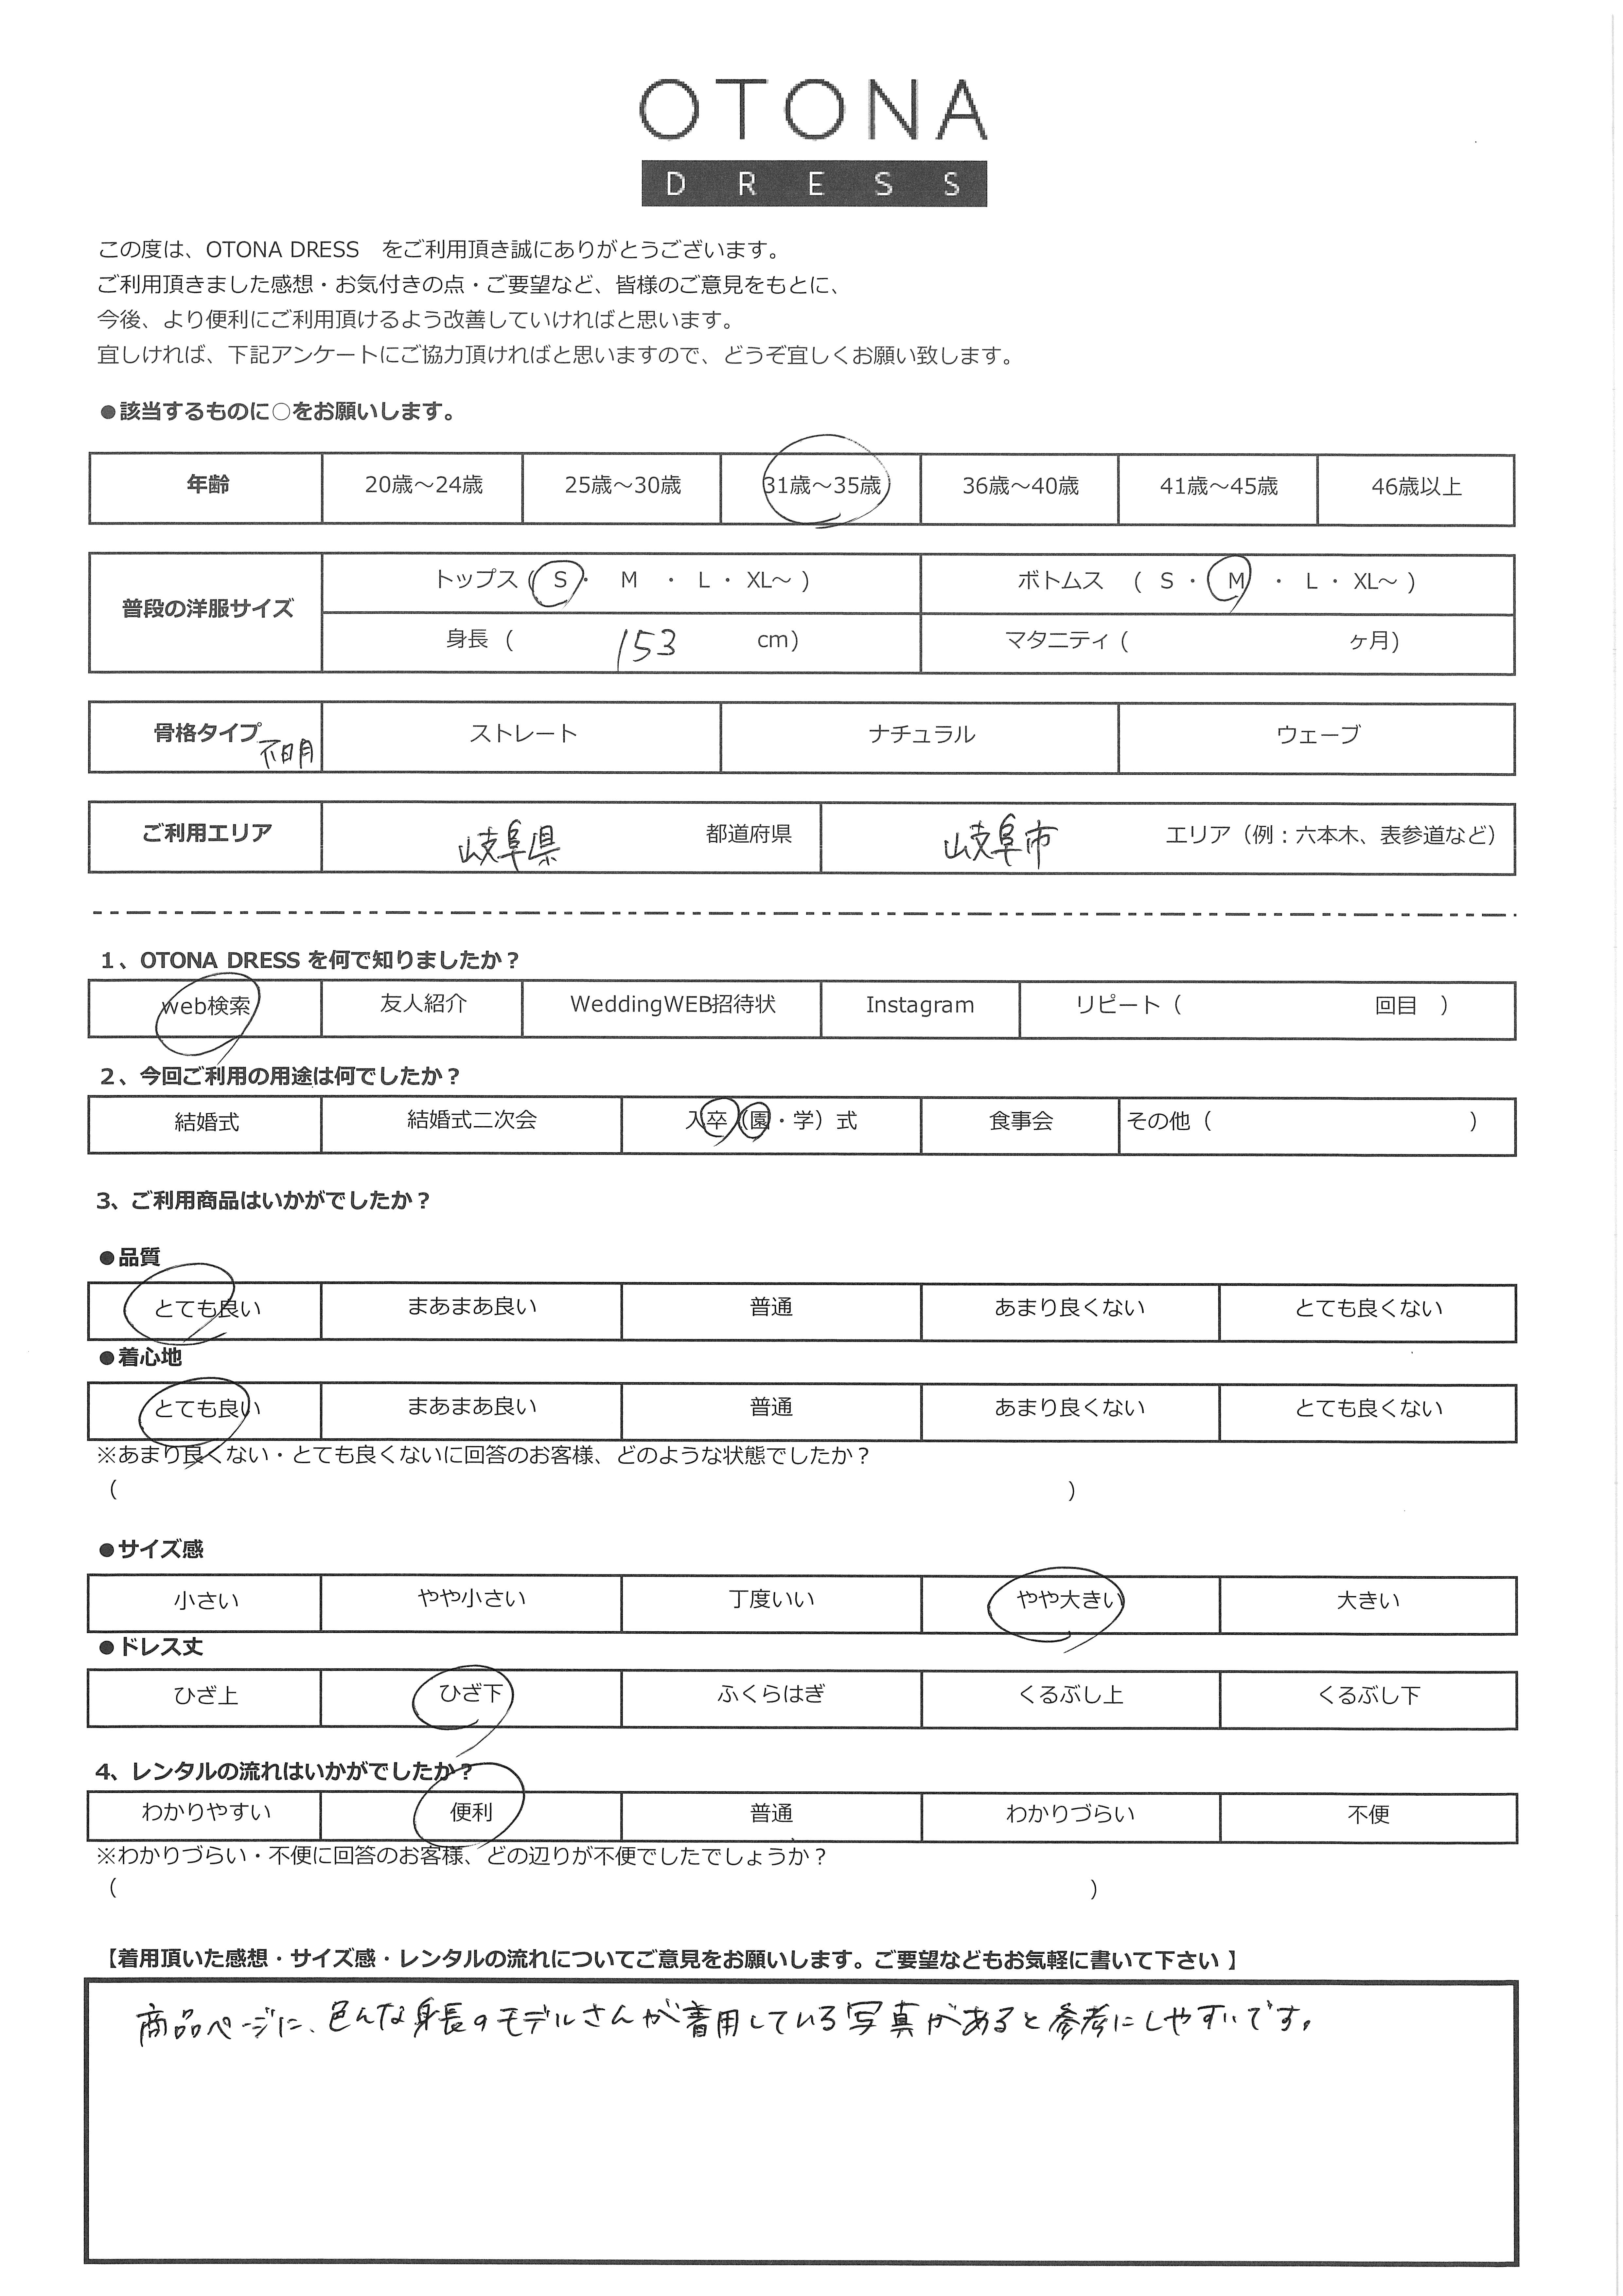 OTONA
DRESS
この度は、OTONA DRESS　をご利用頂き誠にありがとうございます。
ご利用頂きました感想・お気付きの点・ご要望など、皆様のご意見をもとに、
今後、より便利にご利用頂けるよう改善していければと思います。
宜しければ、下記アンケートにご協力頂ければと思いますので、どうぞ宜しくお願い致します。
●該当するものに○をお願いします。
年齢 20歳～24歳 25歳～30歳 31歳～35歳 36歳～40歳 41歳～45歳 46歳以上
普段の洋服サイズ トップス（ S ・ M ・ L ・ XL～ ） ボトムス （ S ・ M ・ L ・ XL～ ）
身長（ 153 cm） マタニティ（ ヶ月）
骨格タイプ 不明 ストレート ナチュラル ウェーブ
ご利用エリア 岐阜県 都道府県 岐阜市 エリア（例：六本木、表参道など）
1、OTONA DRESS を何で知りましたか？
web検索 友人紹介 WeddingWEB招待状 Instagram リピート（ 回目 ）
2、今回ご利用の用途は何でしたか？
結婚式 結婚式二次会 入卒（園・学）式 食事会 その他（ ）
3、ご利用商品はいかがでしたか？
●品質
とても良い まあまあ良い 普通 あまり良くない とても良くない
●着心地
とても良い まあまあ良い 普通 あまり良くない とても良くない
※あまり良くない・とても良くないに回答のお客様、どのような状態でしたか？
（ ）
●サイズ感
小さい やや小さい 丁度いい やや大きい 大きい
●ドレス丈
ひざ上 ひざ下 ふくらはぎ くるぶし上 くるぶし下
4、レンタルの流れはいかがでしたか？
わかりやすい 便利 普通 わかりづらい 不便
※わかりづらい・不便に回答のお客様、どの辺りが不便でしたでしょうか？
（ ）
【着用頂いた感想・サイズ感・レンタルの流れについてご意見をお願いします。ご要望などもお気軽に書いて下さい 】
商品ページに、色んな身長のモデルさんが着用している写真があると参考にしやすいです。